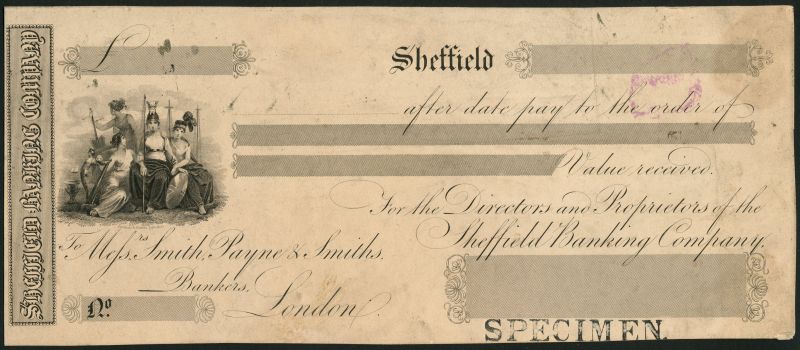 SHEFFIELD BANKING COMPANY
£
Sheffield
after date pay to the order of
Value received.
For the Directors and Proprietors of the
Sheffield Banking Company.
To Messrs Smith, Payne & Smiths,
Bankers,
London.
No.
SPECIMEN.